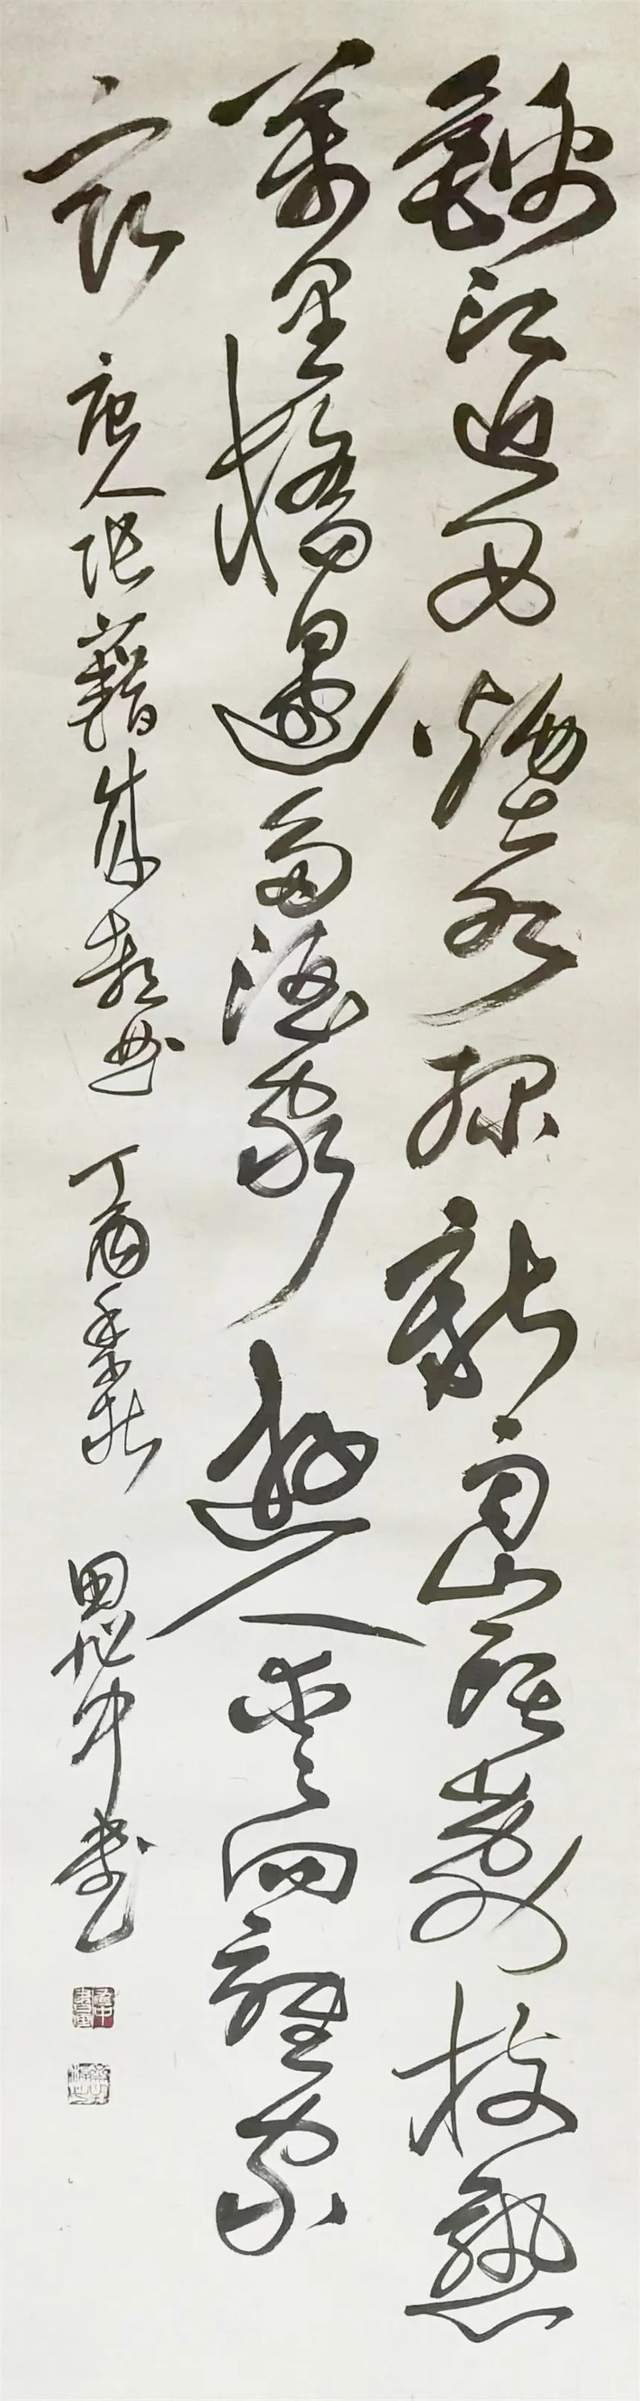 錦江近西煙水綠新雨山頭荔枝熟
萬里橋邊多酒家遊人愛向誰家
宿 唐人張籍成都曲 丁酉季秋 田旭中書